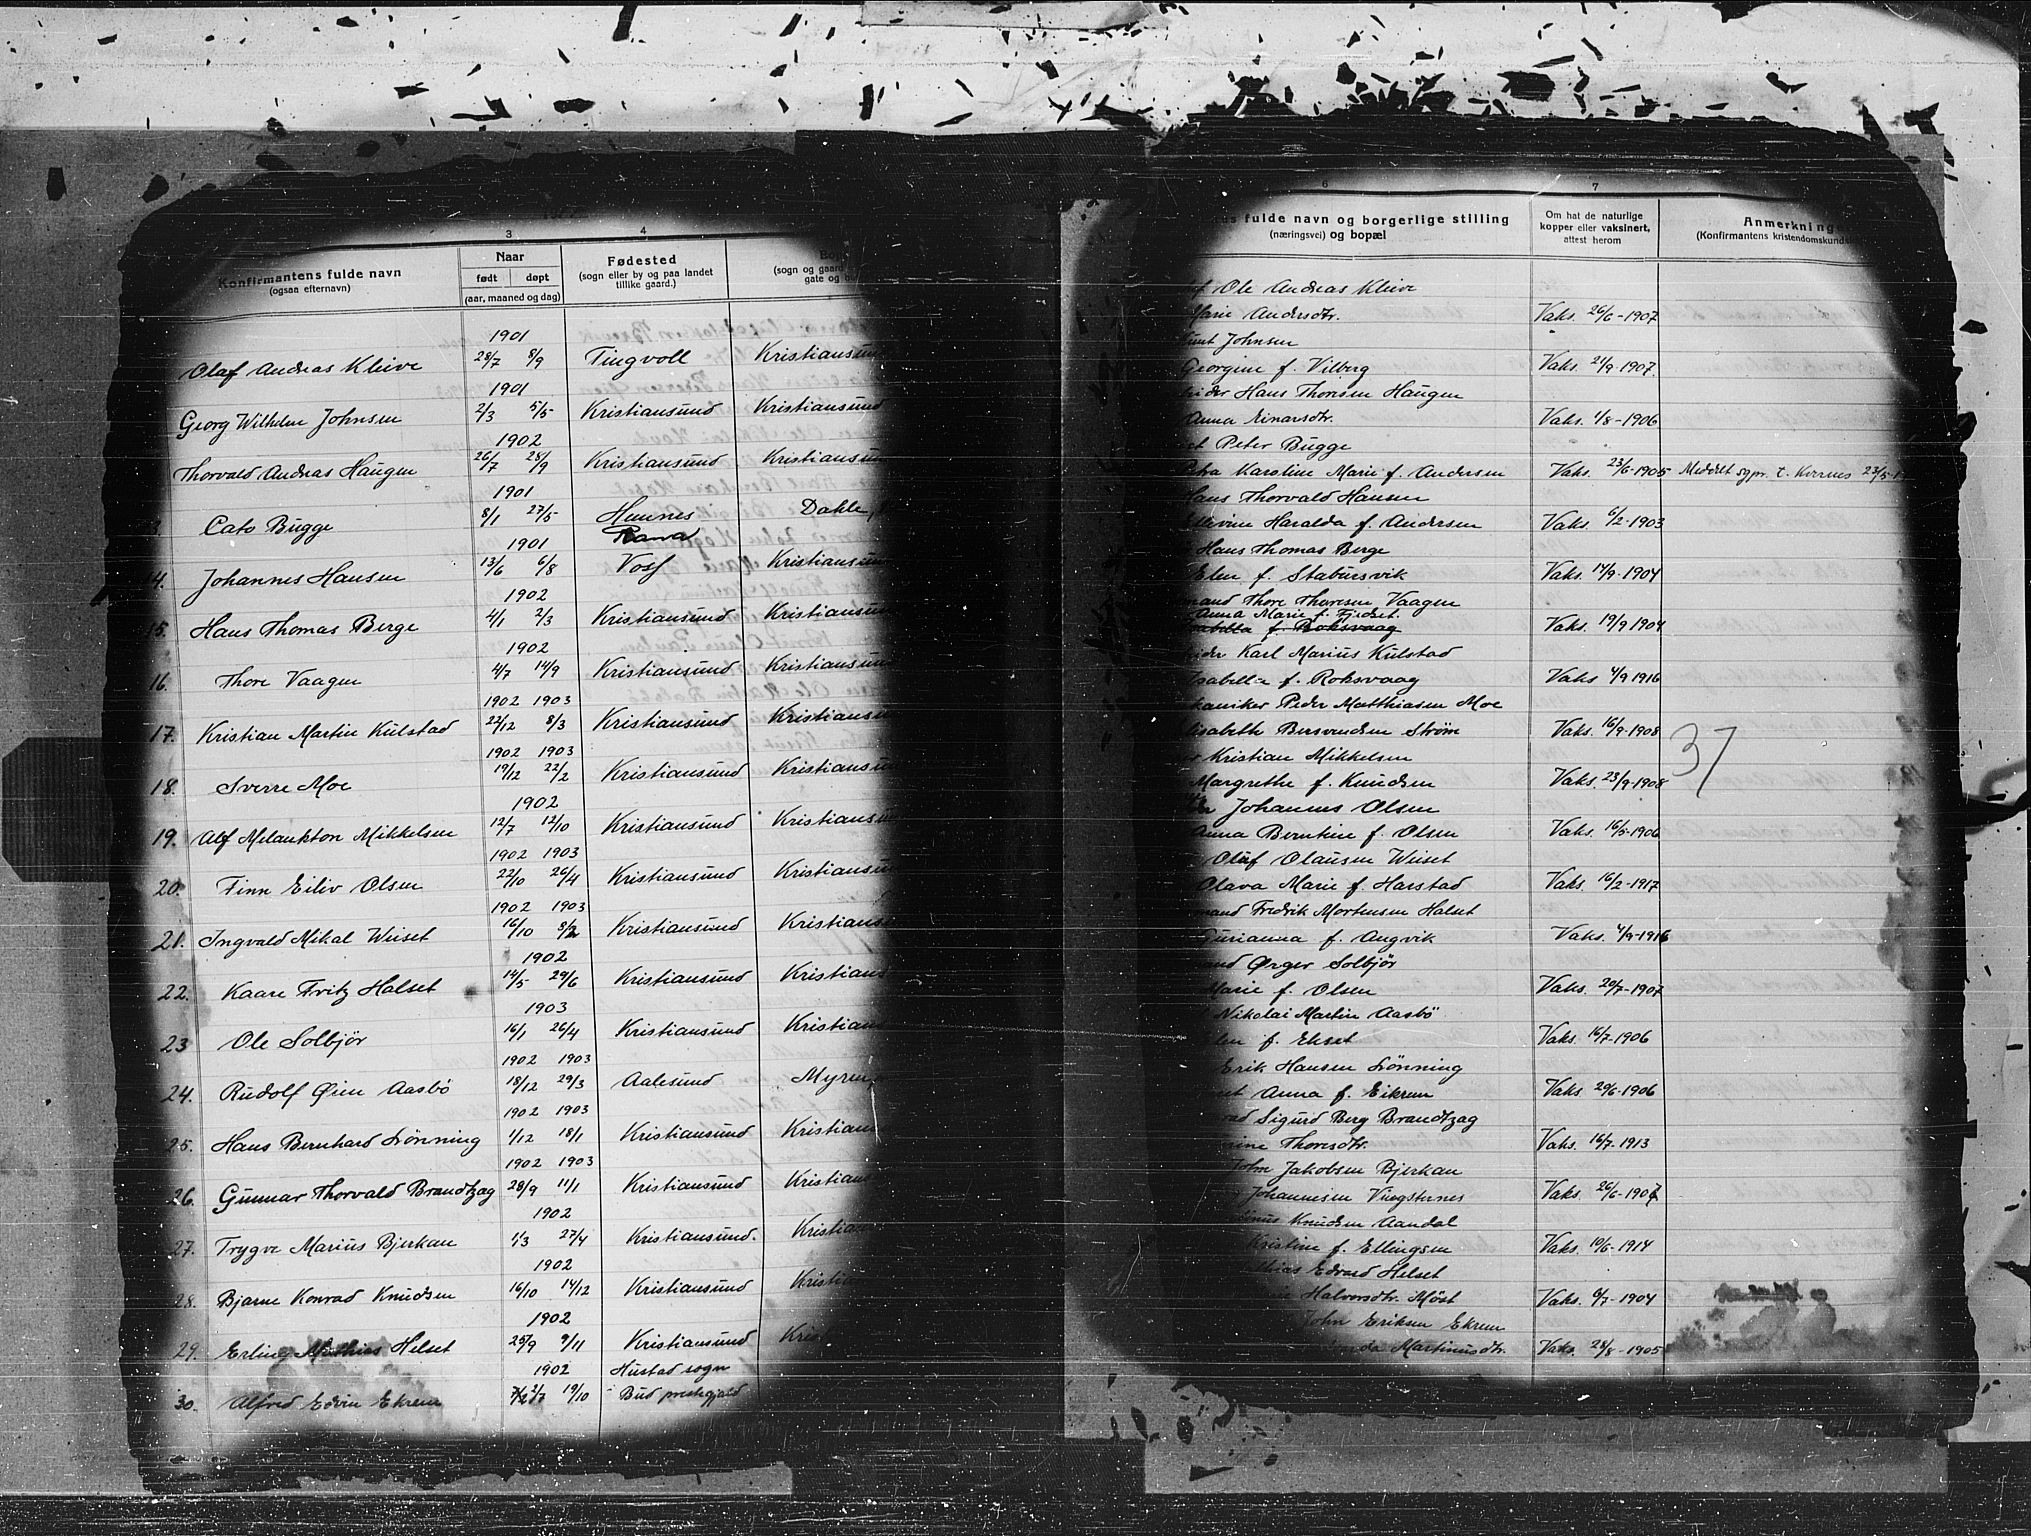 3 4
Konfirmantens fulde navn
(ogsaa efternavn)
Naar
født døpt
(aar, maaned og dag)
Fødested
(sogn eller by og paa landet
tillike gaard.)
(sogn og gaard
gate og
1901
Olaf Andreas Kleive 28/7 8/9 Tingvoll Kristiansund
1901
Georg Wilhelm Johnsen 2/3 5/5 Kristiansund Kristiansund
1902
Thorvald Andreas Haugen 26/7 28/9 Kristiansund Kristiansund
1901
Cato Bugge 8/1 27/5 Hennes Dahle,
Rana
1901
14. Johannes Hansen 13/6 6/8 Voss Kristiansund
1902
15. Hans Thomas Berge 4/1 2/3 Kristiansund Kristiansund
1902
16. Thore Vaagen 4/7 14/9 Kristiansund Kristiansund
1902 1903
17. Kristian Martin Kulstad 22/12 8/3 Kristiansund Kristiansund
1902 1903
18. Sverre Moe 19/12 22/2 Kristiansund Kristiansund
1902
19. Alf Melankton Mikkelsen 12/7 12/10 Kristiansund Kristiansund
1902 1903
20. Finn Eiliv Olsen 22/10 26/4 Kristiansund Kristiansund
1902 1903
21. Ingvald Mikal Wiiset 16/10 8/2 Kristiansund Kristians
1902
22. Kaare Fritz Halset 14/5 29/6 Kristiansund Kristians
1903
23 Ole Solbjør 16/1 26/4 Kristiansund Kristians
1902 1903
24. Rudolf Ørin Aasbø 18/12 29/3 Aalesund Myren,
1902 1903
25. Hans Bernhard Lønning 1/12 18/1 Kristiansund Kristians
1902 1903
26. Gunnar Thorvald Brandtzag 28/9 11/1 Kristiansund Kristians
1902
27. Trygve Marius Bjerkan 1/3 27/4 Kristiansund. Kristian
1902
28. Bjarne Konrad Knudsen 16/10 14/12 Kristiansund Kristian
1902
29. Erling Mathias Helset 25/9 9/11 Kristiansund Kris
1902 Hustad sogn
30. Alfred Edvin Ekrem 2/7 19/10 Bud prestegjæld
6 7
fulde navn og borgerlige stilling
(næringsvei) og bopæl
Om hat de naturlige
kopper eller vaksinert,
attest herom
Anmerkninge
(Konfirmantens kristendomskunds
Ole Andreas Kleive
Marie Andersdtr. Vaks. 26/6-1907
Johnsen
Georgine f. Vilberg Vaks. 21/9-1907.
Hans Thoresen Haugen
Anna Einarsdtr. Vaks. 1/8-1906
Peter Bugge
Karoline Marie f. Andersen Vaks. 23/6-1905 Meddelt sgpr. t. Kvernes 23/5-1
Hans Thorvald Hansen
Haralda f. Andersen Vaks. 6/2-1903
Hans Thomas Berge
Elen f. Stabursvik Vaks. 14/9-1904
Thore Thoresen Vaagen
Anna Marie f. Fjedset.
f. Roksvaag Vaks. 19/9 1904
Karl Marius Kulstad
Isabella f. Roksvaag Vaks 4/9 1916
Peder Matthiasen Moe
Bersvendsen Strøm Vaks. 16/9-1908
Kristian Mikkelsen
Margrethe f. Knudsen Vaks. 23/9-1908
37
Johannes Olsen
Anna Berntine f. Olsen Vaks. 16/5-1906
Oluf Olausen Wiiset
Olava Marie f. Harstad Vaks. 16/2-1917
Fredrik Mortensen Halset
Gurianna f. Angvik Vaks. 4/9-1916
Ørger Solbjør
Marie f. Olsen Vaks. 20/7-1907
Nikolai Martin Aasbø
f. Ekset Vaks. 16/7-1906
Erik Hansen Lønning
Anna f. Eikrem Vaks. 29/6-1906
Sigurd Berg Brandtzag
Thoresdtr. Vaks. 16/7-1913
Jakobsen Bjerkan
Johannesen Vingsternes Vaks. 26/6-1907
Knudsen Aandal
Kristine f. Ellingsen Vaks. 10/6-1914
Edvard Helset
Halvorsdtr. Møst Vaks. 6/7-1904
John Eriksen Ekrem
Martinusdtr. Vaks. 28/8-1905